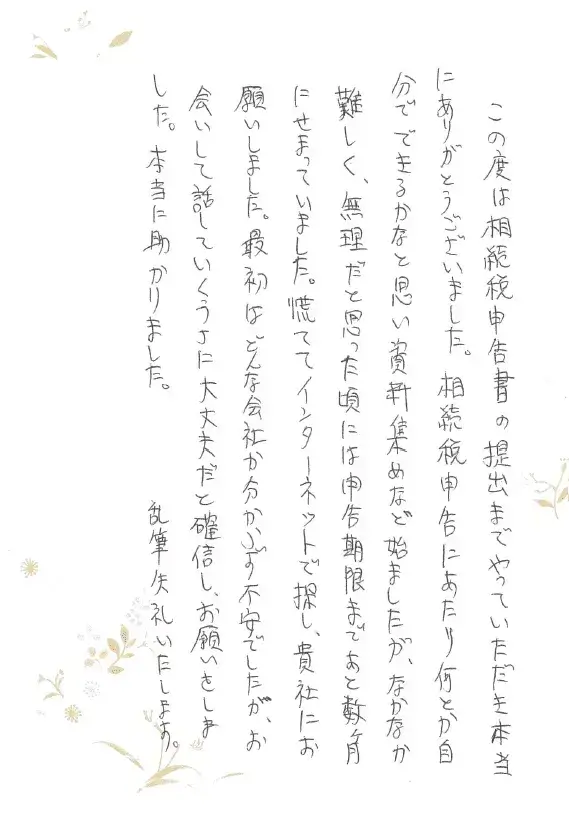 この度は相続税申告書の提出までやっていただき本当
にありがとうございました。相続税申告にあたり何とか自
分でできるかなと思い資料集めなど始ましたが、なかなか
難しく、無理だと思った頃には申告期限まであと数ヶ月
にせまっていました。慌ててインターネットで探し、貴社にお
願いしました。最初はどんな会社か分からず不安でしたが、お
会いして話していくうちに大丈夫だと確信し、お願いをしま
した。本当に助かりました。
乱筆失礼いたします。